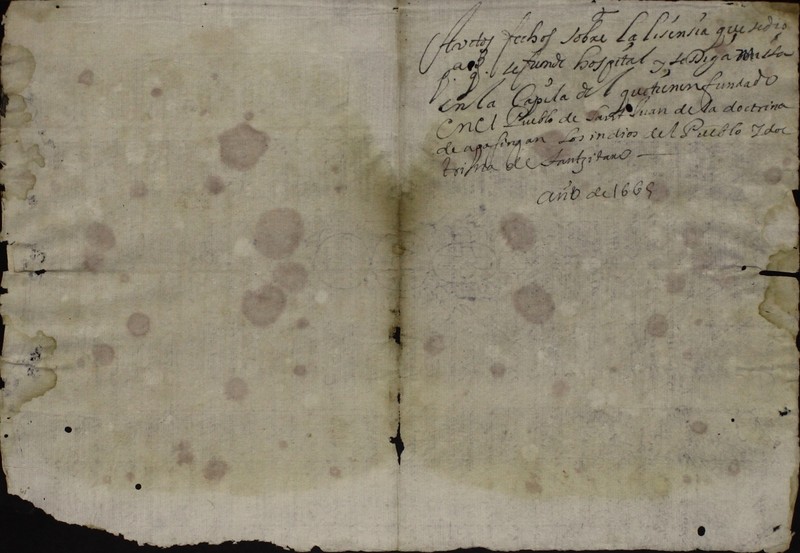 Auctos fechos sobre la lisensia que se dio
p.a q.e se funde hospital y se diga missa
en la Capila del que tienen fundado
en el Pueblo de Sant Juan de la doctrina
de apasingan los indios del Pueblo y doc
trina de tantzitaro —
año de 1669